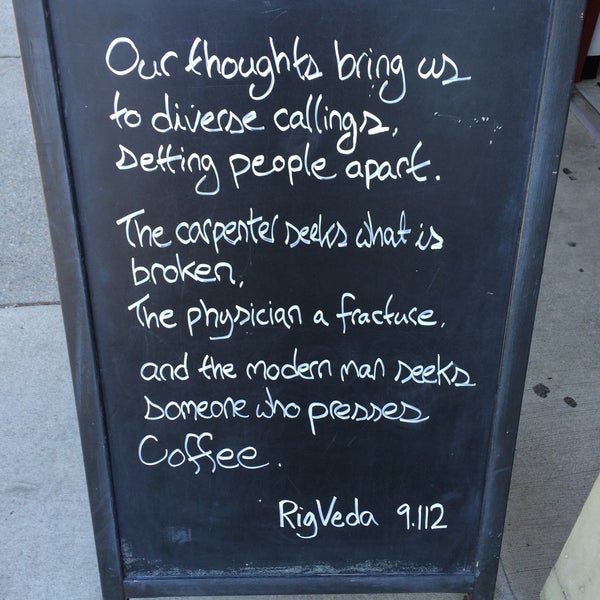 Our thoughts bring us
to diverse callings,
setting people apart.
The carpenter seeks what is
broken,
The physician a fracture,
and the modern man seeks
someone who presses
Coffee.
RigVeda 9.112